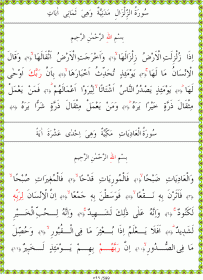 سُورَةُ الزِّلْزَالِ مَدَنِيَّةٌ وَهِيَ ثَمَانِي آيَاتٍ
بِسْمِ اللهِ الرَّحْمٰنِ الرَّحِيمِ
إِذَا زُلْزِلَتِ الْأَرْضُ زِلْزَالَهَا ﴿١﴾ وَأَخْرَجَتِ الْأَرْضُ أَثْقَالَهَا ﴿٢﴾ وَقَالَ
الْإِنْسَانُ مَا لَهَا ﴿٣﴾ يَوْمَئِذٍ تُحَدِّثُ أَخْبَارَهَا ﴿٤﴾ بِأَنَّ رَبَّكَ أَوْحَى
لَهَا ﴿٥﴾ يَوْمَئِذٍ يَصْدُرُ النَّاسُ أَشْتَاتًا لِيُرَوْا أَعْمَالَهُمْ ﴿٦﴾ فَمَنْ يَعْمَلْ
مِثْقَالَ ذَرَّةٍ خَيْرًا يَرَهُ ﴿٧﴾ وَمَنْ يَعْمَلْ مِثْقَالَ ذَرَّةٍ شَرًّا يَرَهُ ﴿٨﴾
سُورَةُ الْعَادِيَاتِ مَكِّيَّةٌ وَهِيَ إِحْدَى عَشْرَةَ آيَةً
بِسْمِ اللهِ الرَّحْمٰنِ الرَّحِيمِ
وَالْعَادِيَاتِ ضَبْحًا ﴿١﴾ فَالْمُورِيَاتِ قَدْحًا ﴿٢﴾ فَالْمُغِيرَاتِ صُبْحًا
﴿٣﴾ فَأَثَرْنَ بِهِ نَقْعًا ﴿٤﴾ فَوَسَطْنَ بِهِ جَمْعًا ﴿٥﴾ إِنَّ الْإِنْسَانَ لِرَبِّهِ
لَكَنُودٌ ﴿٦﴾ وَإِنَّهُ عَلَى ذٰلِكَ لَشَهِيدٌ ﴿٧﴾ وَإِنَّهُ لِحُبِّ الْخَيْرِ
لَشَدِيدٌ ﴿٨﴾ أَفَلَا يَعْلَمُ إِذَا بُعْثِرَ مَا فِي الْقُبُورِ ﴿٩﴾ وَحُصِّلَ
مَا فِي الصُّدُورِ ﴿١٠﴾ إِنَّ رَبَّهُمْ بِهِمْ يَوْمَئِذٍ لَخَبِيرٌ ﴿١١﴾